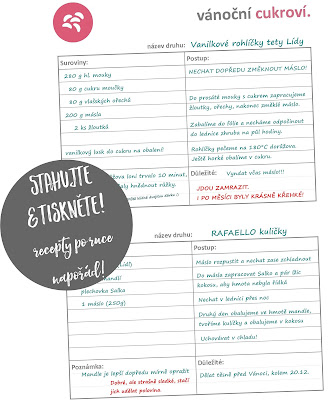 vánoční cukroví.
název druhu: Vanilkové rohlíčky tety Lídy
Suroviny:
Postup:
280 g hl. mouky
NECHAT DOPŘEDU ZMĚKNOUT MÁSLO!
80 g cukru moučky
80 g vlašských ořechů
Do prosáté mouky s cukrem zapracujeme
200 g másla
žloutky, ořechy, nakonec změklé máslo.
2 ks žloutků
Zabalíme do fólie a necháme odpočinout
do lednice zhruba na půl hodiny.
vanilkový cukr do cukru na obalení!
Rohlíčky pečeme na 180°C dorůžova.
Ještě horké obalíme v cukru.
trvalo 10 minut,
Důležité: Vyndat včas máslo!!
hnědnout růžky.
JDOU ZAMRAZIT.
I PO MĚSÍCI BYLY KRÁSNĚ KŘEHKÉ!
STAHUJTE
&TISKNĚTE!
recepty po ruce
napořád!
název druhu: RAFAELLO kuličky
Postup:
Máslo rozpustit a nechat zase zchladnout
Do másla zapracovat Salko a pár lžic
plechovka Salka
kokosu, aby hmota nebyla řídká
1 máslo (250g)
Nechat v lednici přes noc
Druhý den obalujeme ve hmotě mandle,
tvoříme kuličky a obalujeme v kokosu
Uchovávat v chladu!
Poznámka:
Důležité:
Mandle je lepší dopředu mírně opražit
Dělat těsně před Vánoci, kolem 20.12.
Dobré, ale strašně sladké, stačí
jich udělat polovina.